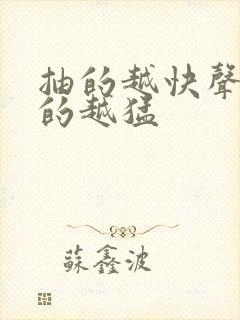 抽的越快聲
的越猛
蘇鑫波